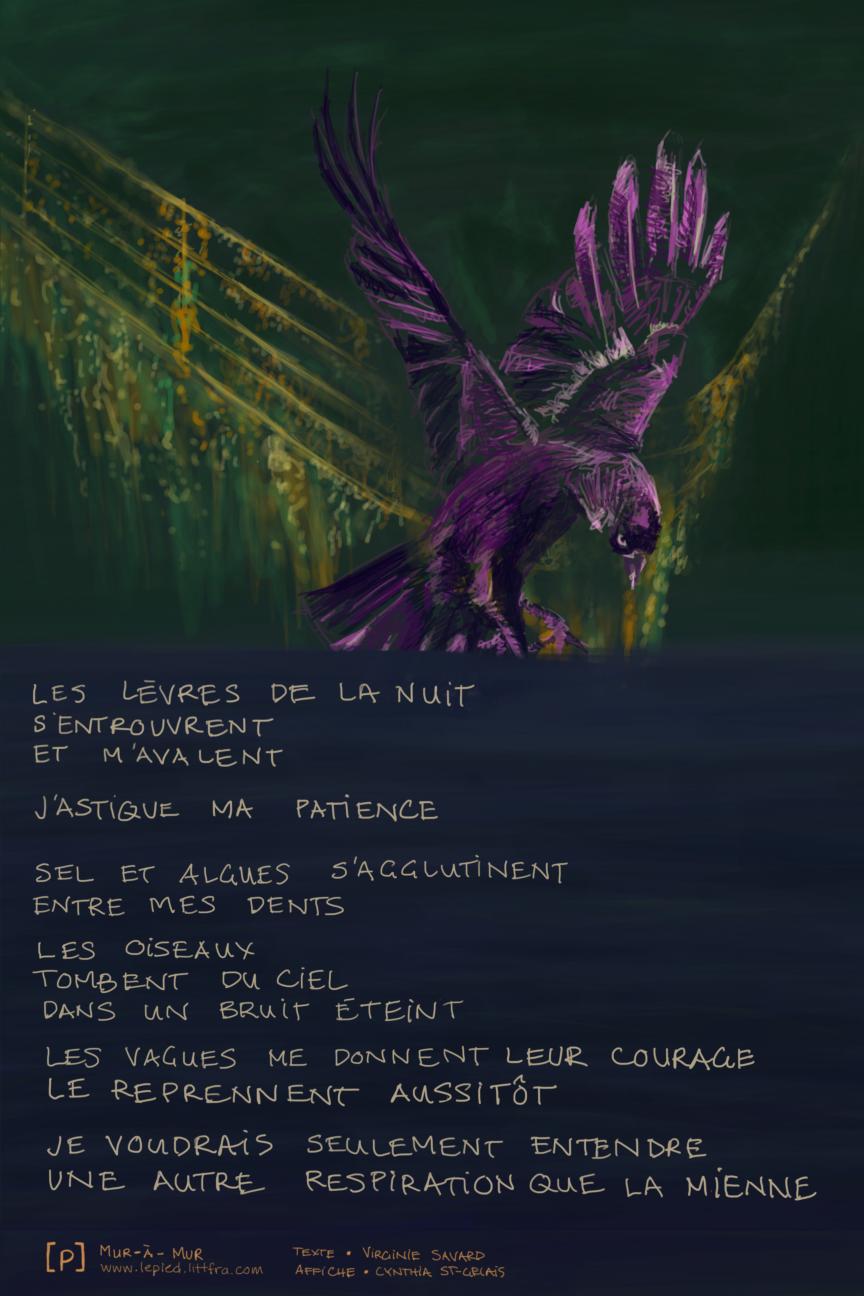 LES LÈVRES DE LA NUIT
S'ENTROUVRENT
ET M'AVALENT
J'ASTIQUE MA PATIENCE
SEL ET ALGUES S'AGGLUTINENT
ENTRE MES DENTS
LES OISEAUX
TOMBENT DU CIEL
DANS UN BRUIT ÉTEINT
LES VAGUES ME DONNENT LEUR COURAGE
LE REPRENNENT AUSSITÔT
JE VOUDRAIS SEULEMENT ENTENDRE
UNE AUTRE RESPIRATION QUE LA MIENNE
[P] MUR-À-MUR
www.lepied.littfra.com
TEXTE • VIRGINIE SAVARD
AFFICHE • CYNTHIA ST-GELAIS